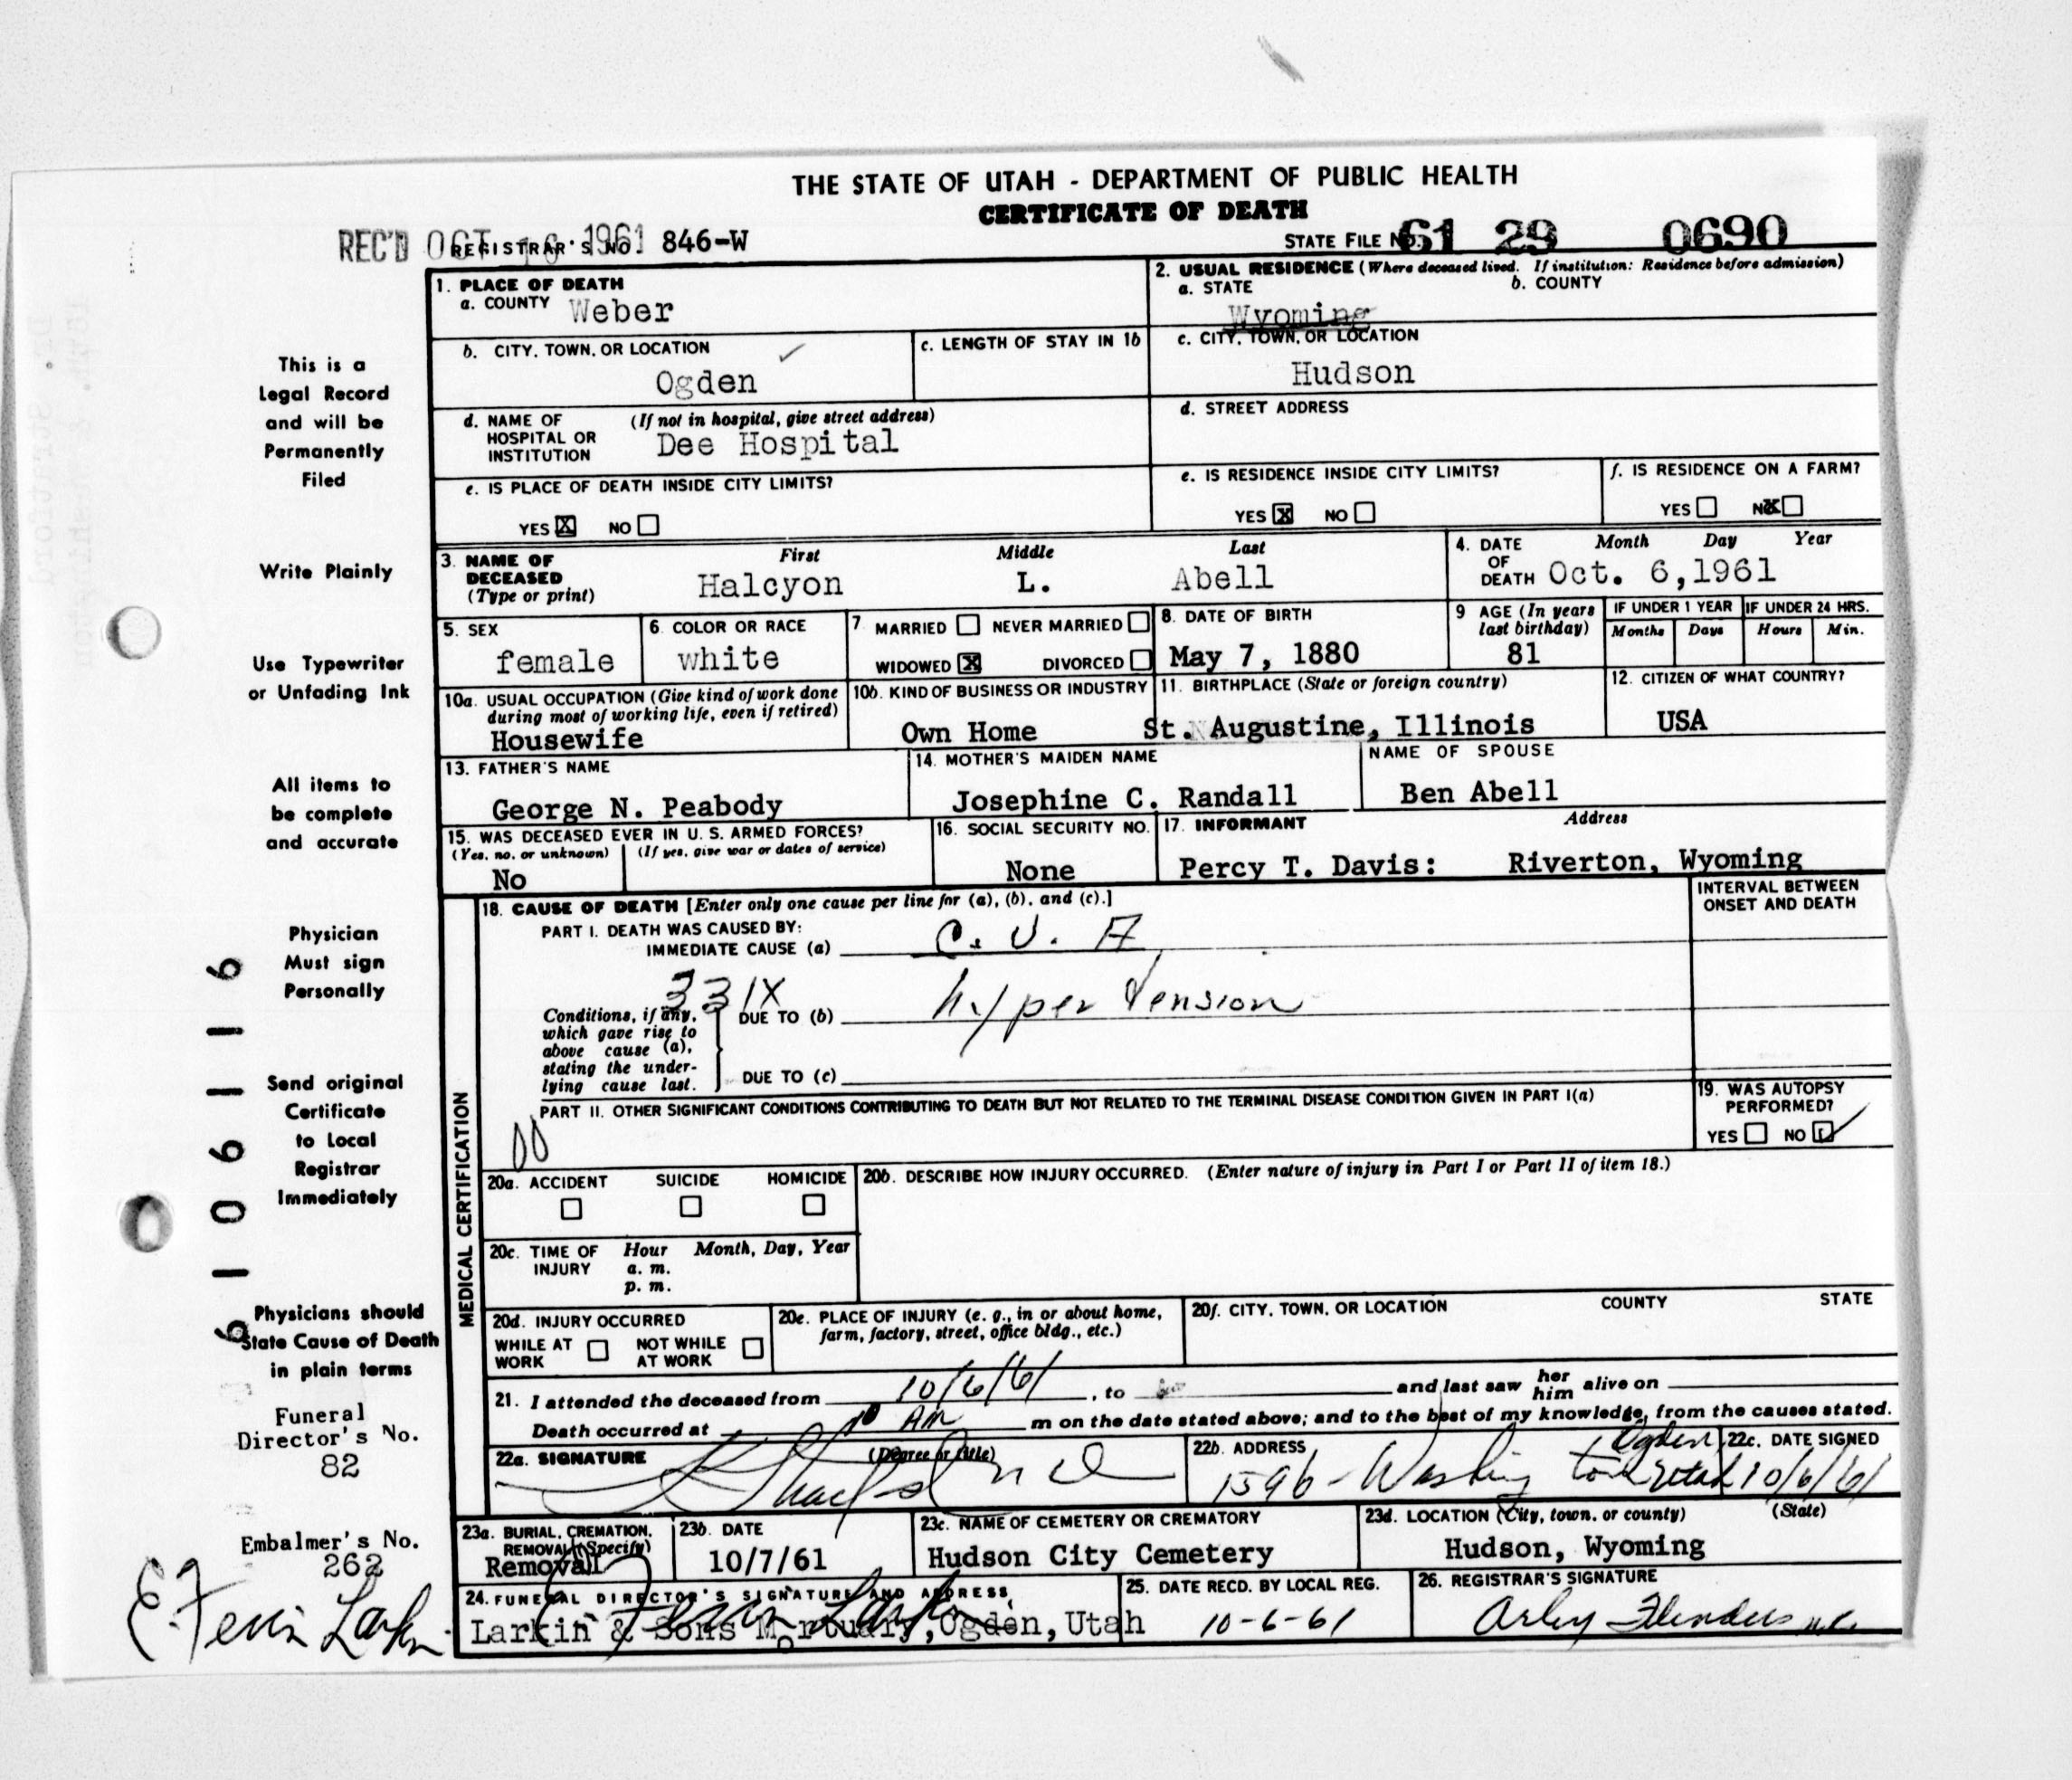 THE STATE OF UTAH - DEPARTMENT OF PUBLIC HEALTH
CERTIFICATE OF DEATH
REC'D OCT 1961 REGISTRAR'S NO. 846-W STATE FILE NO. 61 29 0690
1. PLACE OF DEATH
a. COUNTY Weber
2. USUAL RESIDENCE (Where deceased lived. If institution: Residence before admission)
a. STATE Wyoming b. COUNTY
b. CITY, TOWN, OR LOCATION Ogden
c. LENGTH OF STAY IN 1b
c. CITY, TOWN, OR LOCATION Hudson
d. NAME OF HOSPITAL OR INSTITUTION (If not in hospital, give street address) Dee Hospital
d. STREET ADDRESS
e. IS PLACE OF DEATH INSIDE CITY LIMITS?
YES X NO
e. IS RESIDENCE INSIDE CITY LIMITS?
YES X NO
f. IS RESIDENCE ON A FARM?
YES NO X
3. NAME OF DECEASED (Type or print)
First Middle Last
Halcyon L. Abell
4. DATE OF DEATH Month Day Year
Oct. 6,1961
5. SEX female
6. COLOR OR RACE white
7. MARRIED NEVER MARRIED
WIDOWED X DIVORCED
8. DATE OF BIRTH May 7, 1880
9 AGE (In years last birthday) 81
IF UNDER 1 YEAR Months Days
IF UNDER 24 HRS. Hours Min.
10a. USUAL OCCUPATION (Give kind of work done during most of working life, even if retired) Housewife
10b. KIND OF BUSINESS OR INDUSTRY Own Home
11. BIRTHPLACE (State or foreign country) St. Augustine, Illinois
12. CITIZEN OF WHAT COUNTRY? USA
13. FATHER'S NAME George N. Peabody
14. MOTHER'S MAIDEN NAME Josephine C. Randall
NAME OF SPOUSE Ben Abell
15. WAS DECEASED EVER IN U. S. ARMED FORCES?
(Yes, no, or unknown) (If yes, give war or dates of service)
No
16. SOCIAL SECURITY NO. None
17. INFORMANT Address
Percy T. Davis: Riverton, Wyoming
MEDICAL CERTIFICATION
18. CAUSE OF DEATH [Enter only one cause per line for (a), (b), and (c).]
INTERVAL BETWEEN ONSET AND DEATH
PART I. DEATH WAS CAUSED BY:
IMMEDIATE CAUSE (a) C. V. A
331X
Conditions, if any, which gave rise to above cause (a), stating the underlying cause last.
DUE TO (b) hypertension
DUE TO (c)
PART II. OTHER SIGNIFICANT CONDITIONS CONTRIBUTING TO DEATH BUT NOT RELATED TO THE TERMINAL DISEASE CONDITION GIVEN IN PART I(a)
19. WAS AUTOPSY PERFORMED?
YES NO
20a. ACCIDENT SUICIDE HOMICIDE
20b. DESCRIBE HOW INJURY OCCURRED. (Enter nature of injury in Part I or Part II of item 18.)
20c. TIME OF INJURY Hour Month, Day, Year
a. m.
p. m.
20d. INJURY OCCURRED
WHILE AT WORK NOT WHILE AT WORK
20e. PLACE OF INJURY (e. g., in or about home, farm, factory, street, office bldg., etc.)
20f. CITY, TOWN, OR LOCATION COUNTY STATE
21. I attended the deceased from 10/6/61, to and last saw her him alive on
Death occurred at 10 AM m on the date stated above; and to the best of my knowledge, from the causes stated.
22a. SIGNATURE (Degree or title)
22b. ADDRESS 1596 - Washington Ogden Utah
22c. DATE SIGNED 10/6/61
23a. BURIAL, CREMATION, REMOVAL (Specify) Removal
23b. DATE 10/7/61
23c. NAME OF CEMETERY OR CREMATORY Hudson City Cemetery
23d. LOCATION (City, town, or county) (State)
Hudson, Wyoming
24. FUNERAL DIRECTOR'S SIGNATURE AND ADDRESS
Larkin & Sons Mortuary,Ogden,Utah
25. DATE RECD. BY LOCAL REG. 10-6-61
26. REGISTRAR'S SIGNATURE
This is a
Legal Record
and will be
Permanently
Filed
Write Plainly
Use Typewriter
or Unfading Ink
All items to
be complete
and accurate
Physician
Must sign
Personally
Send original
Certificate
to Local
Registrar
Immediately
Physicians should
State Cause of Death
in plain terms
Funeral
Director's No.
82
Embalmer's No.
262